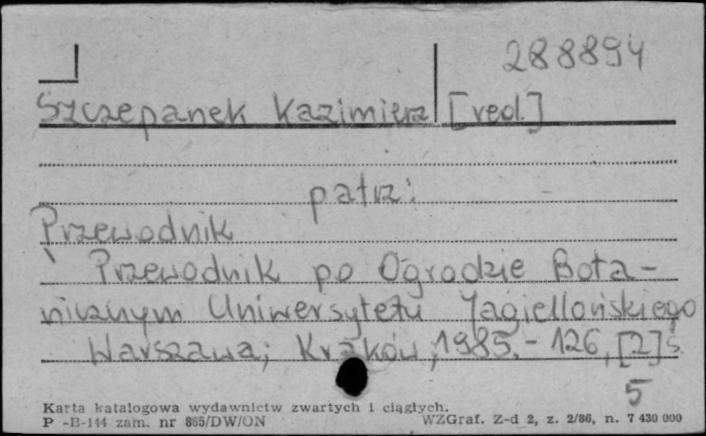 288894
Szczepanek Kazimierz [red.]
patrz:
Przewodnik
Przewodnik po Ogrodzie Bota-
nicznym Uniwersytetu Jagiellońskiego
Warszawa; Kraków, 1985. - 126, [2] s.
5
Karta katalogowa wydawnictw zwartych i ciągłych.
P -B-144 zam. nr 865/DW/ON WZGraf. Z-d 2, z. 2/86, n. 7 430 000